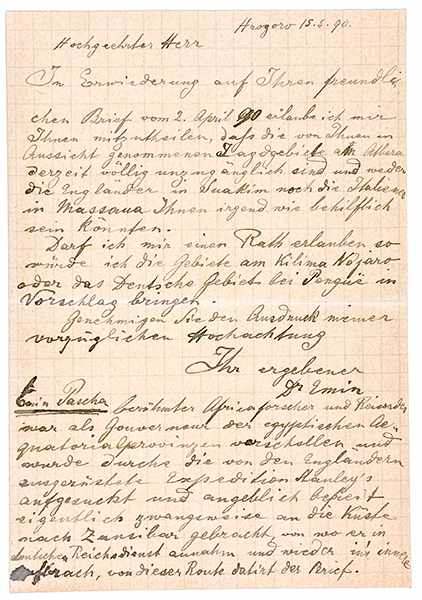 Mrogoro 15.5.90.
Hochgeehrter Herr
In Erwiederung auf Ihren freundli-
chen Brief vom 2. April 90 erlaube ich mir
Ihnen mitzutheilen, dass die von Ihnen in
Aussicht genommenen Jagdgebiete am Atbara
derzeit völlig unzugänglich sind und weder
die Engländer in Suakim noch die Italiener
in Massaua Ihnen irgend wie behilflich
sein könnten.
Darf ich mir einen Rath erlauben so
würde ich die Gebiete am Kilima Njaro
oder das Deutsche Gebiet bei in
Vorschlag bringen.
Genehmigen Sie den Ausdruck meiner
vorzüglichen Hochachtung
Ihr ergebener
Dr Emin
Emin Pascha berühmter Africaforscher und Reisender
war als Gouverneur der egyptischen Ae-
quatorialprovinzen verschollen und
wurde durch die von den Engländern
ausgerüstete Expedition Stanley's
aufgesucht und angeblich befreit
eigentlich zwangsweise an die Küste
nach Zansibar gebracht, von wo er in
deutschen Reichsdienst annahm und wieder in's innere
aufbrach, von dieser Route datirt der Brief.